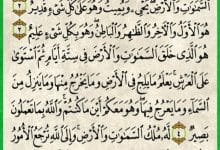 ٱلسَّمَٰوَٰتِ وَٱلۡأَرۡضِۖ يُحۡيِۦ وَيُمِيتُۖ وَهُوَ عَلَىٰ كُلِّ شَيۡءٖ قَدِيرٌ
هُوَ ٱلۡأَوَّلُ وَٱلۡأٓخِرُ وَٱلظَّٰهِرُ وَٱلۡبَاطِنُۖ وَهُوَ بِكُلِّ شَيۡءٍ عَلِيمٌ
هُوَ ٱلَّذِي خَلَقَ ٱلسَّمَٰوَٰتِ وَٱلۡأَرۡضَ فِي سِتَّةِ أَيَّامٖ ثُمَّ ٱسۡتَوَىٰ
عَلَى ٱلۡعَرۡشِۖ يَعۡلَمُ مَا يَلِجُ فِي ٱلۡأَرۡضِ وَمَا يَخۡرُجُ مِنۡهَا وَمَا يَنزِلُ مِنَ
ٱلسَّمَآءِ وَمَا يَعۡرُجُ فِيهَاۖ وَهُوَ مَعَكُمۡ أَيۡنَ مَا كُنتُمۡۚ وَٱللَّهُ بِمَا تَعۡمَلُونَ
بَصِيرٞ ٤ لَّهُۥ مُلۡكُ ٱلسَّمَٰوَٰتِ وَٱلۡأَرۡضِۚ وَإِلَى ٱللَّهِ تُرۡجَعُ ٱلۡأُمُورُ